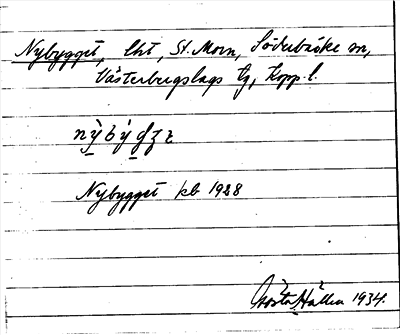 Nybygget, lht, St. Morn, Söderbärke sn,
Västerbergslags tg, Kopp. l.
Nybygget kb 1928
Gösta Hallen 1934.